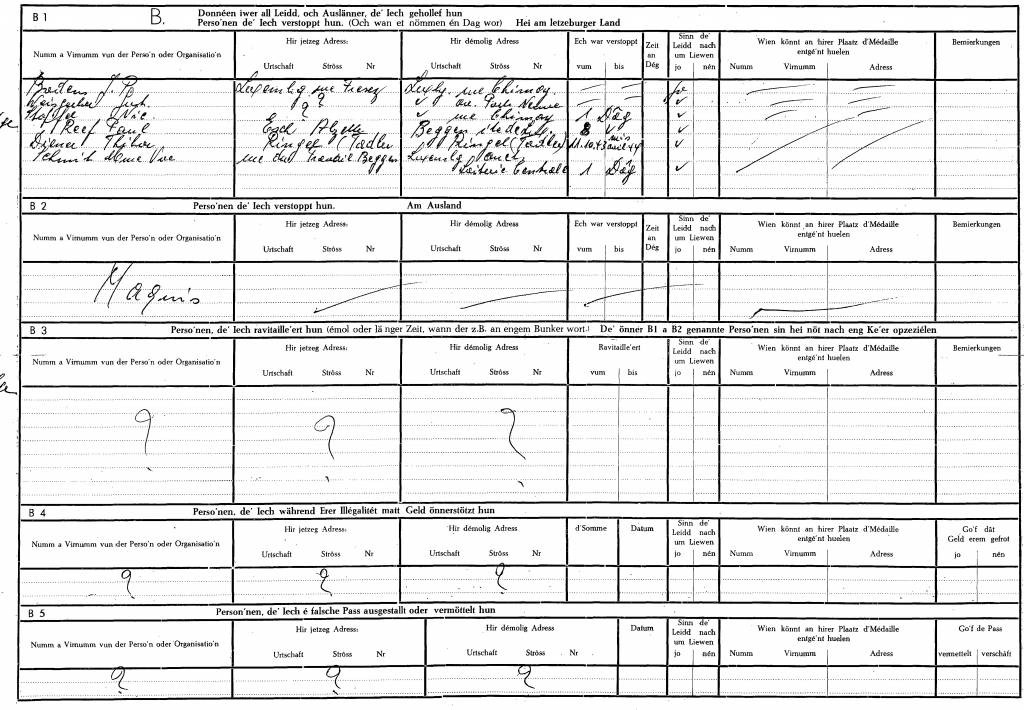 B 1
B.
Donnéen iwer all Leidd, och Auslänner, de' Iech gehollef hun
Perso'nen de' Iech verstoppt hun. (Och wan et nömmen én Dag wor) Hei am letzeburger Land
Numm a Virnumm vun der Perso'n oder Organisatio'n
Hir jetzeg Adress:
Urtschaft Ströss Nr
Hir démolig Adress:
Urtschaft Ströss Nr
Ech war verstoppt
vum bis
Zeit an Dég
Sinn de' Leidd nach um Liewen
jo nén
Wien könnt an hirer Plaatz d'Médaille entgé'nt huelen
Numm Virnumm Adress
Bemierkungen
Luxembg rue
Luxbg. rue Chimay
jo
? ?
ave. Porte Neuve
Nic.
rue Chimay 1 Däg
Reef Paul Esch Alzette Beggen 8
Diener Ringel (Tadler Ringel (Tadler) 11.10.43
Schmit Beggen Luxembg
Laiterie Centrale 1 Däg
B 2
Perso'nen de' Iech verstoppt hun. Am Ausland
Numm a Virnumm vun der Perso'n oder Organisatio'n
Hir jetzeg Adress:
Urtschaft Ströss Nr
Hir démolig Adress:
Urtschaft Ströss Nr
Ech war verstoppt
vum bis
Zeit an Dég
Sinn de' Leidd nach um Liewen
jo nén
Wien könnt an hirer Plaatz d'Médaille entgé'nt huelen
Numm Virnumm Adress
Bemierkungen
Maquis
B 3
Perso'nen, de' Iech ravitaille'ert hun (émol oder lä nger Zeit, wann der z.B. an engem Bunker wort.) De' önner B1 a B2 genannte Perso'nen sin hei nöt nach eng Ke'er opzeziélen
Numm a Virnumm vun der Perso'n oder Organisatio'n
Hir jetzeg Adress:
Urtschaft Ströss Nr
Hir démolig Adress:
Urtschaft Ströss Nr
Ravitaille'ert
vum bis
Sinn de' Leidd nach um Liewen
jo nén
Wien könnt an hirer Plaatz d'Médaille entgé'nt huelen
Numm Virnumm Adress
Bemierkungen
? ? ?
B 4
Perso'nen, de' Iech während Erer Illégalitét matt Geld önnerstötzt hun
Numm a Virnumm vun der Perso'n oder Organisatio'n
Hir jetzeg Adress:
Urtschaft Ströss Nr
Hir démolig Adress
Urtschaft Ströss Nr
d'Somme
Datum
Sinn de' Leidd nach um Liewen
jo nén
Wien könnt an hirer Plaatz d'Médaille entgé'nt huelen
Numm Virnumm Adress
Go'f dât Geld erem gefrot
jo nén
? ? ?
B 5
Person'nen, de' Iech é falsche Pass ausgestallt oder vermöttelt hun
Numm a Virnumm vun der Perso'n oder Organisatio'n
Hir jetzeg Adress:
Urtschaft Ströss Nr
Hir démolig Adress:
Urtschaft Ströss Nr
Datum
Sinn de' Leidd nach um Liewen
jo nén
Wien könnt an hirer Plaatz d'Médaille entgé'nt huelen
Numm Virnumm Adress
Go'f de Pass
vermettelt verschäft
? ? ?